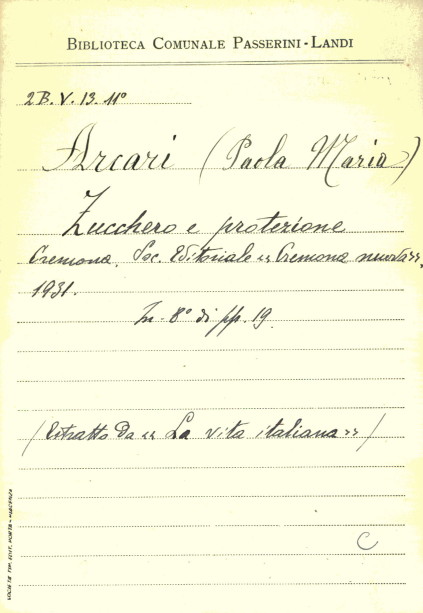 BIBLIOTECA COMUNALE PASSERINI-LANDI
2B.V.13.11°
Arcari (Paola Maria)
Zucchero e protezione
Cremona. Soc. Editoriale «Cremona nuova»,
1931.
In-8° di pp. 19.
(Estratto da «La vita italiana»)
C